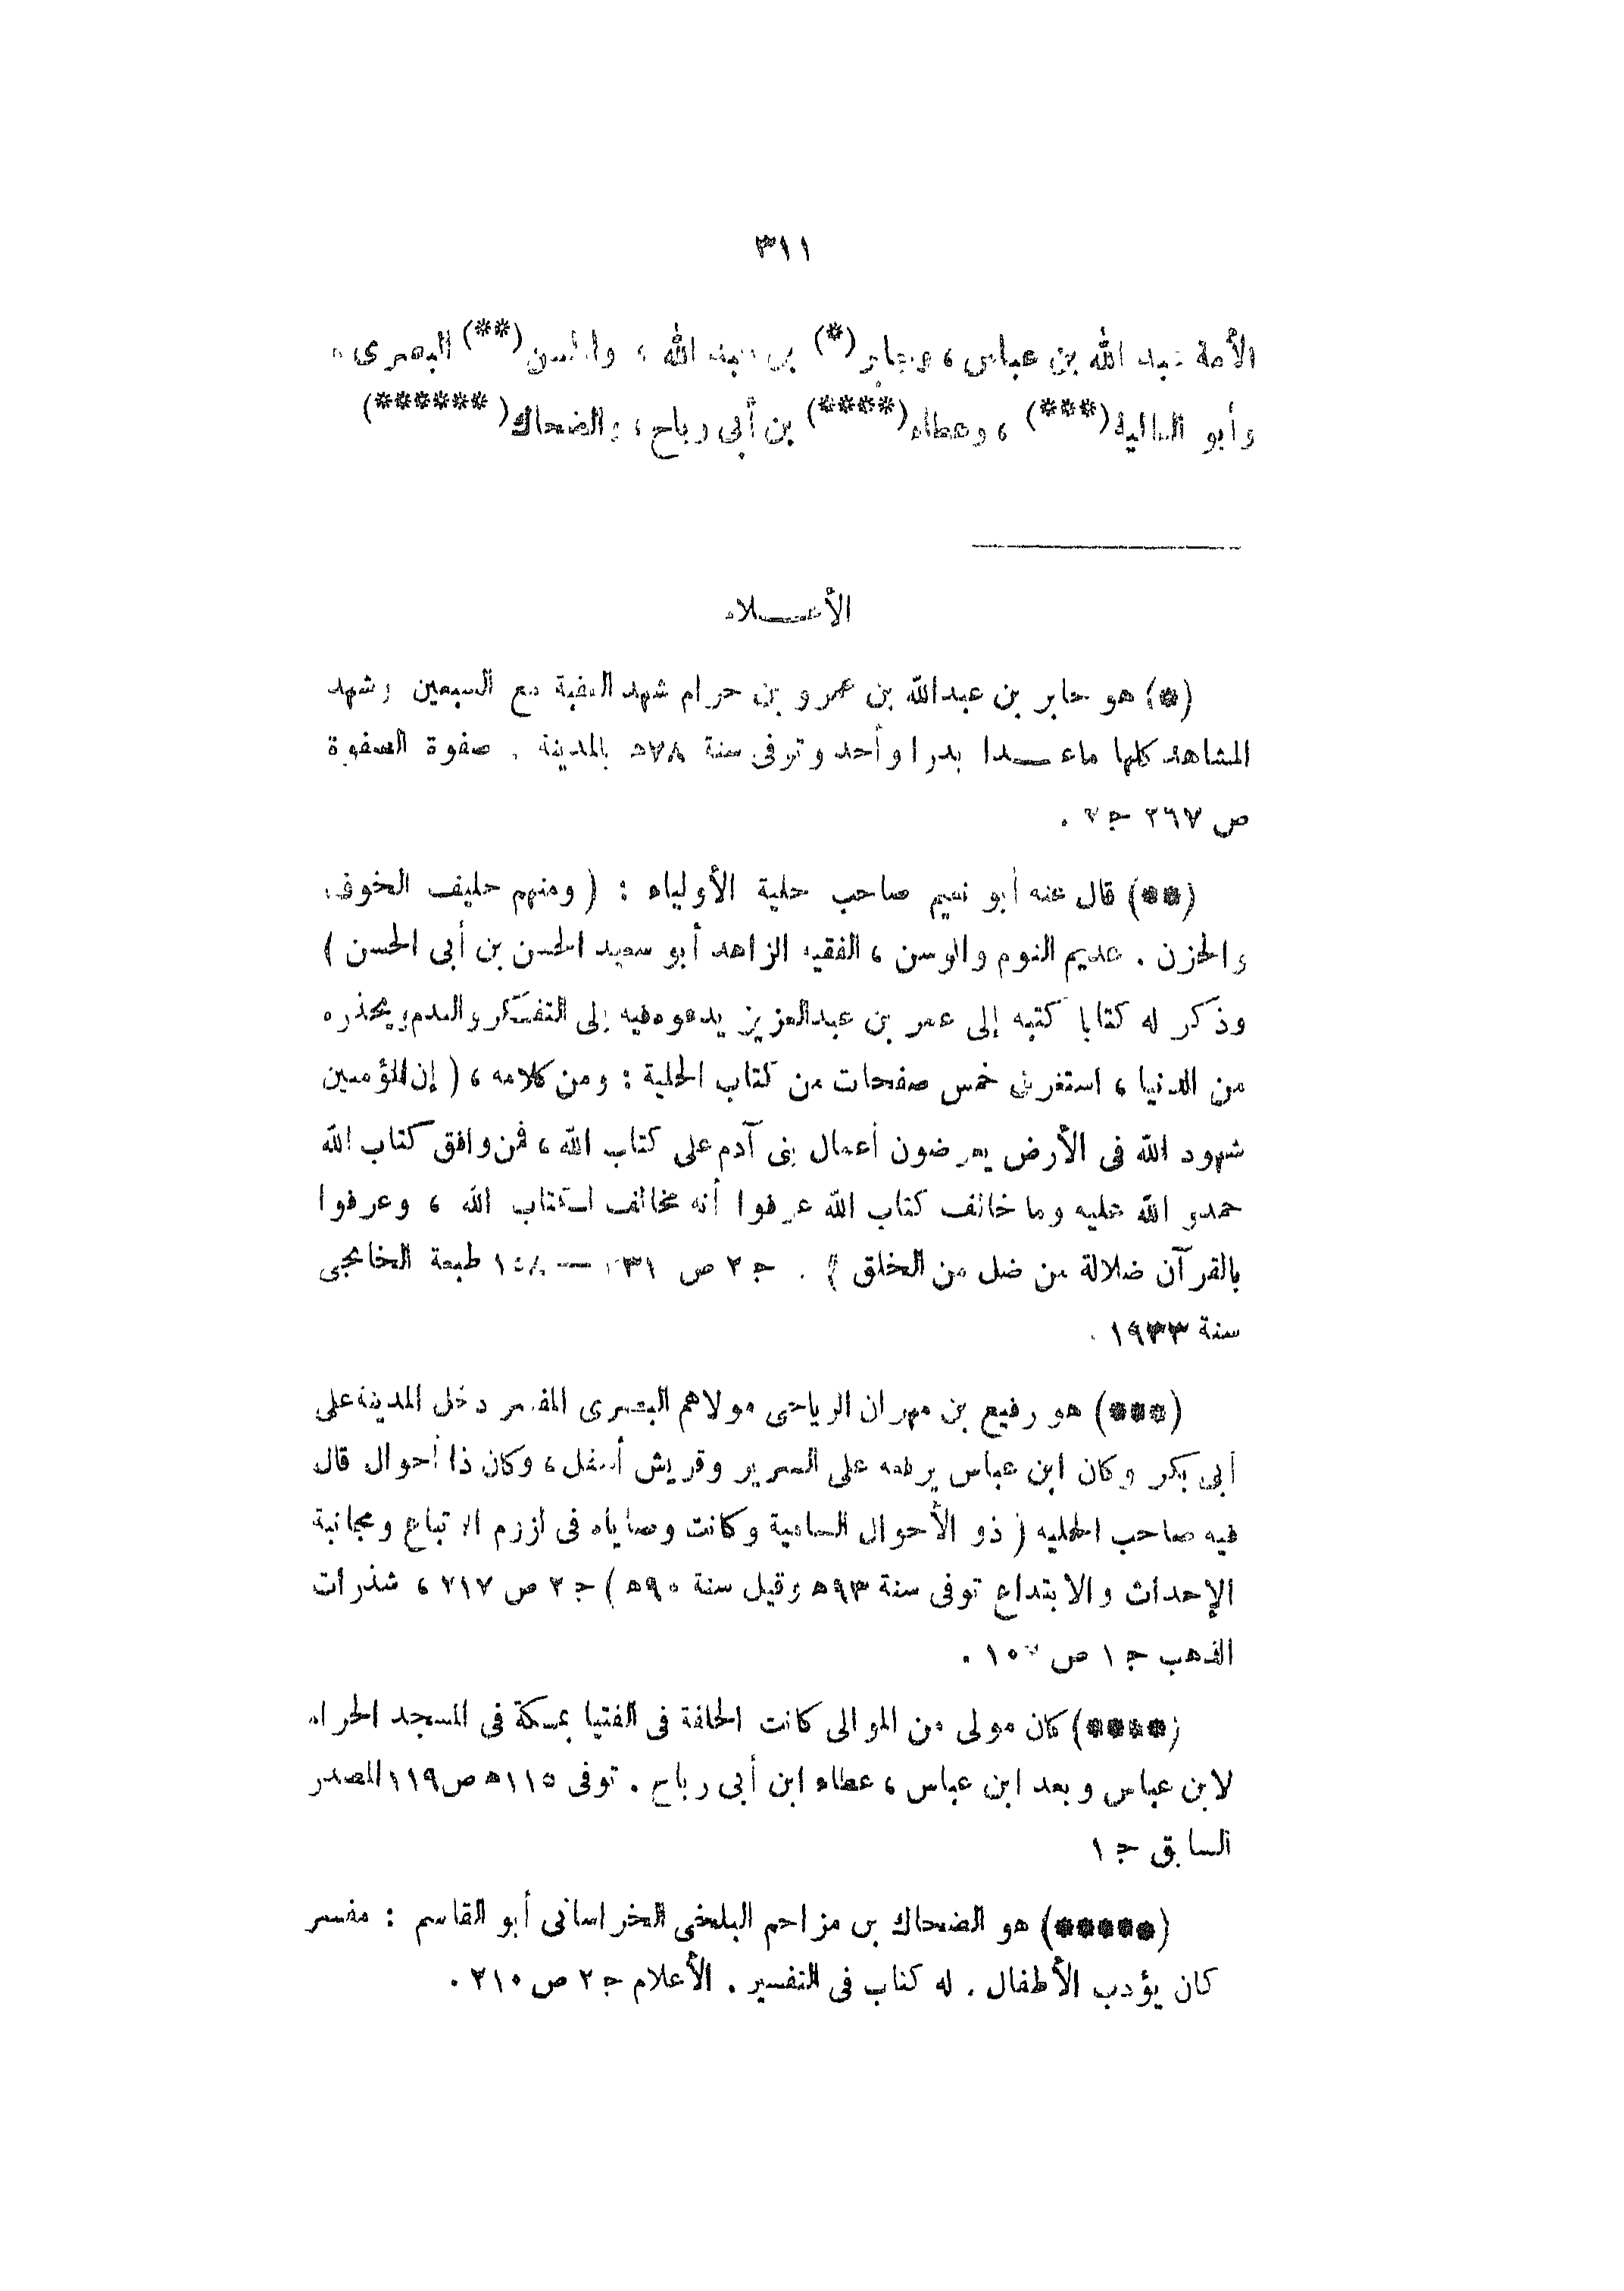 ٣١١
الأمة عبد الله بن عباس ، وجابر(*) بن عبد الله ، والحسن(**) البصرى ،
وأبو العالية(***) ، وعطاء(****) بن أبى رباح ، والضحاك(******)
الأعــلام
(*) هو جابر بن عبدالله بن عمرو بن حرام شهد العقبة مع السبعين وشهد
المشاهد كلها ماعــدا بدرا وأحد وتوفى سنة ٧٨ه بالمدينة . صفوة الصفوة
ص ٢٦٧ ج٢ .
(**) قال عنه أبو نعيم صاحب حلية الأولياء : ( ومنهم حليف الخوف
والحزن . عديم النوم والوسن ، الفقيه الزاهد أبو سعيد الحسن بن أبى الحسن )
وذكر له كتابا كتبه إلى عمر بن عبدالعزيز يدعوه فيه إلى التفكر والندم ويحذره
من الدنيا ، استغرق خمس صفحات من كتاب الحلية : ومن كلامه ، ( إن المؤمنين
شهود الله فى الأرض يعرضون أعمال بنى آدم على كتاب الله ، فمن وافق كتاب الله
حمدو الله عليه وما خالف كتاب الله عرفوا أنه مخالف لكتاب الله ، وعرفوا
بالقرآن ضلالة من ضل من الخلق ) . ج ٢ ص ١٣١ — ١٤٨ طبعة الخانجى
سنة ١٩٣٣ .
(***) هو رفيع بن مهران الرياحى مولاهم البصرى المفسر دخل المدينة على
أبى بكر وكان ابن عباس يرفعه على السرير وقريش أسفل ، وكان ذا أحوال قال
فيه صاحب الحليه ( ذو الأحوال السامية وكانت وصاياه فى لزوم الاتباع ومجانبة
الإحداث والابتداع توفى سنة ٩٣ه وقيل سنة ٩٠ه ) ج ٢ ص ٢١٧ ، شذرات
الذهب ج ١ ص .
(****) كان مولى من الموالى كانت الحلقة فى الفتيا بمكة فى المسجد الحرام
لابن عباس وبعد ابن عباس ، عطاء ابن أبى رباح . توفى ١١٥ه ص ١١٩ المصدر
السابق ج ١
(*****) هو الضحاك بن مزاحم البلخى الخراسانى أبو القاسم : مفسر
كان يؤدب الأطفال . له كتاب فى التفسير . الأعلام ج ٢ ص ٢١٠ .